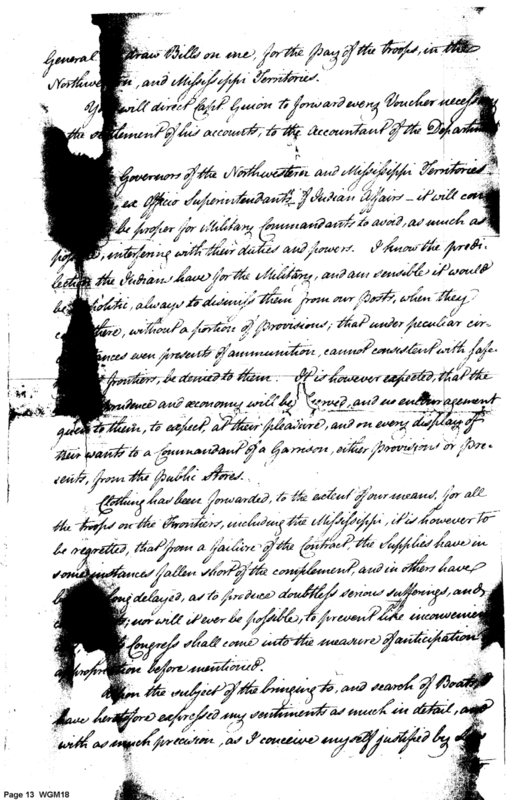 General draw Bills on me, for the Pay of the troops, in the
Northwestern, and Mississippi Territories.
You will direct Capt. Guion to forward every Voucher necessary
the settlement of his accounts, to the Accountant of the Department
Governors of the Northwestern and Mississippi Territories
ex Officio Superintendants of Indian Affairs — it will
be proper for Military Commandants to avoid, as much as
interfering with their duties and powers. I know the predi-
lection the Indians have for the Military, and am sensible it would
be politic, always to dismiss them from our Posts, when they
there, without a portion of Provisions; that under peculiar cir-
even presents of ammunition, cannot consistent with safe-
frontiers, be denied to them. It is however expected, that the
prudence and œconomy will be and no encouragement
given to them, to expect, at their pleasure, and on every display of
their wants to a Commandant of a Garrison, either Provisions or Pre-
sents, from the Public Stores.
Clothing has been forwarded, to the extent of our means, for all
the troops on the Frontiers, including the Mississippi, it is however to
be regretted, that from a failure of the Contract, the Supplies have in
some instances fallen short of the complement, and in others have
long delayed, as to produce doubtless serious sufferings, and
nor will it ever be possible, to prevent like
Congress shall come into the measure of anticipation
appropriation before mentioned.
Upon the subject of the bringing to, and search of Boats, I
have heretofore expressed my sentiments as much in detail, and
with as much precision, as I conceive myself justified by
Page 13 WGM18